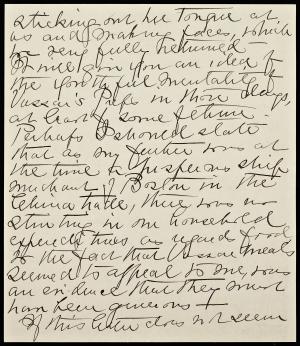 sticking out her tongue at
us and making faces, which
we very fully returned —
It will give you an idea of
the youthful mentality of
Vassar's life in those days,
at least of some of them.
Perhaps I should state
that as my father was at
the time a prosperous ship
merchant of Boston in the
China trade, there was no
stinting in our household
expenditures as regards food
so the fact that Vassar meals
seemed to appeal to me, was
an evidence that they must
have been generous —
If this letter does not seem